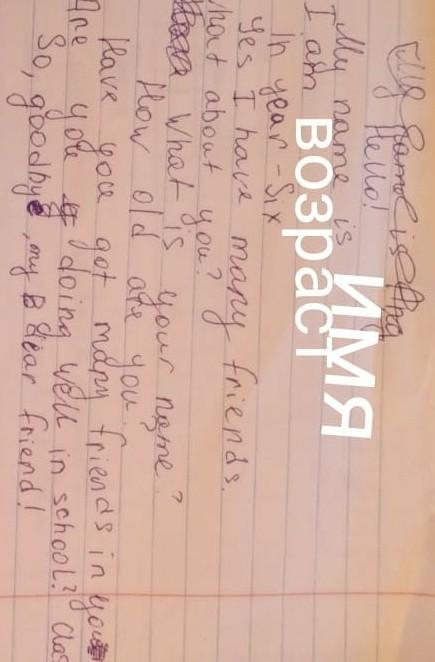 Hello!
My name is ИМЯ
I am возраст
In year - six
Yes I have many friends.
hat about you?
What is your name?
How old are you.
Have you got many friends in your
Are you doing well in school? clas
So, goodbye, my dear friend!